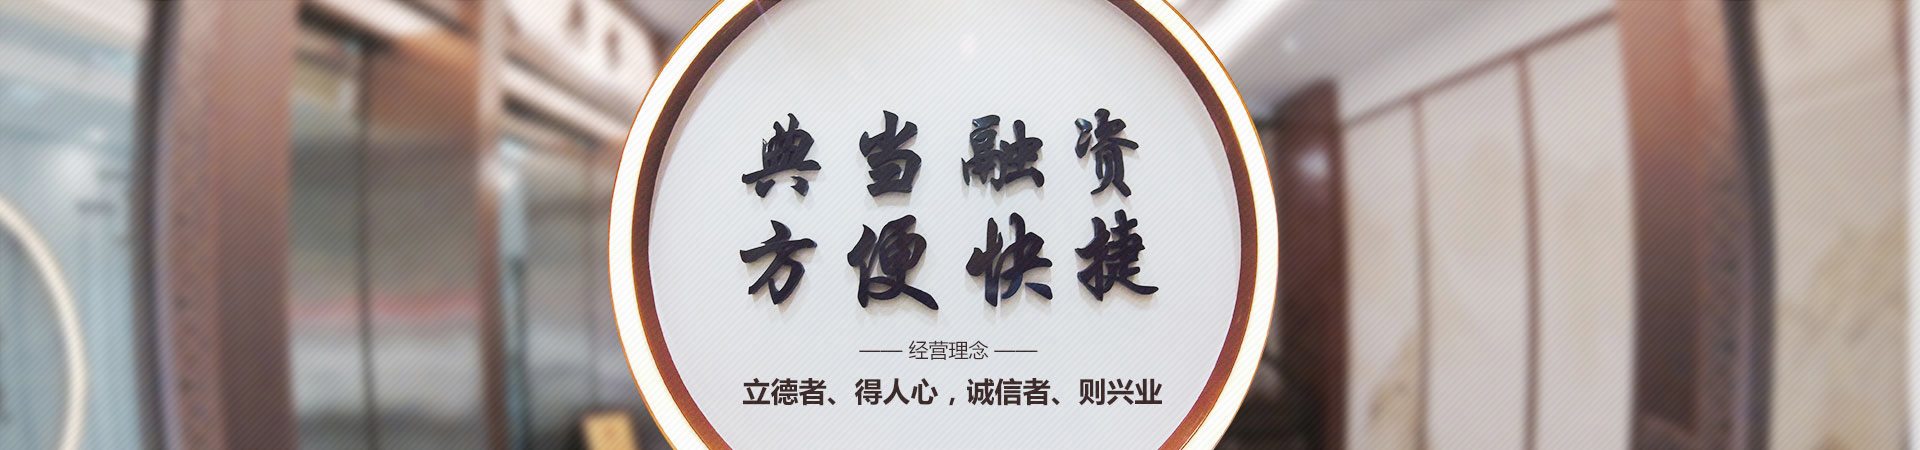 典当融资
方便快捷
—— 经营理念 ——
立德者、得人心，诚信者、则兴业